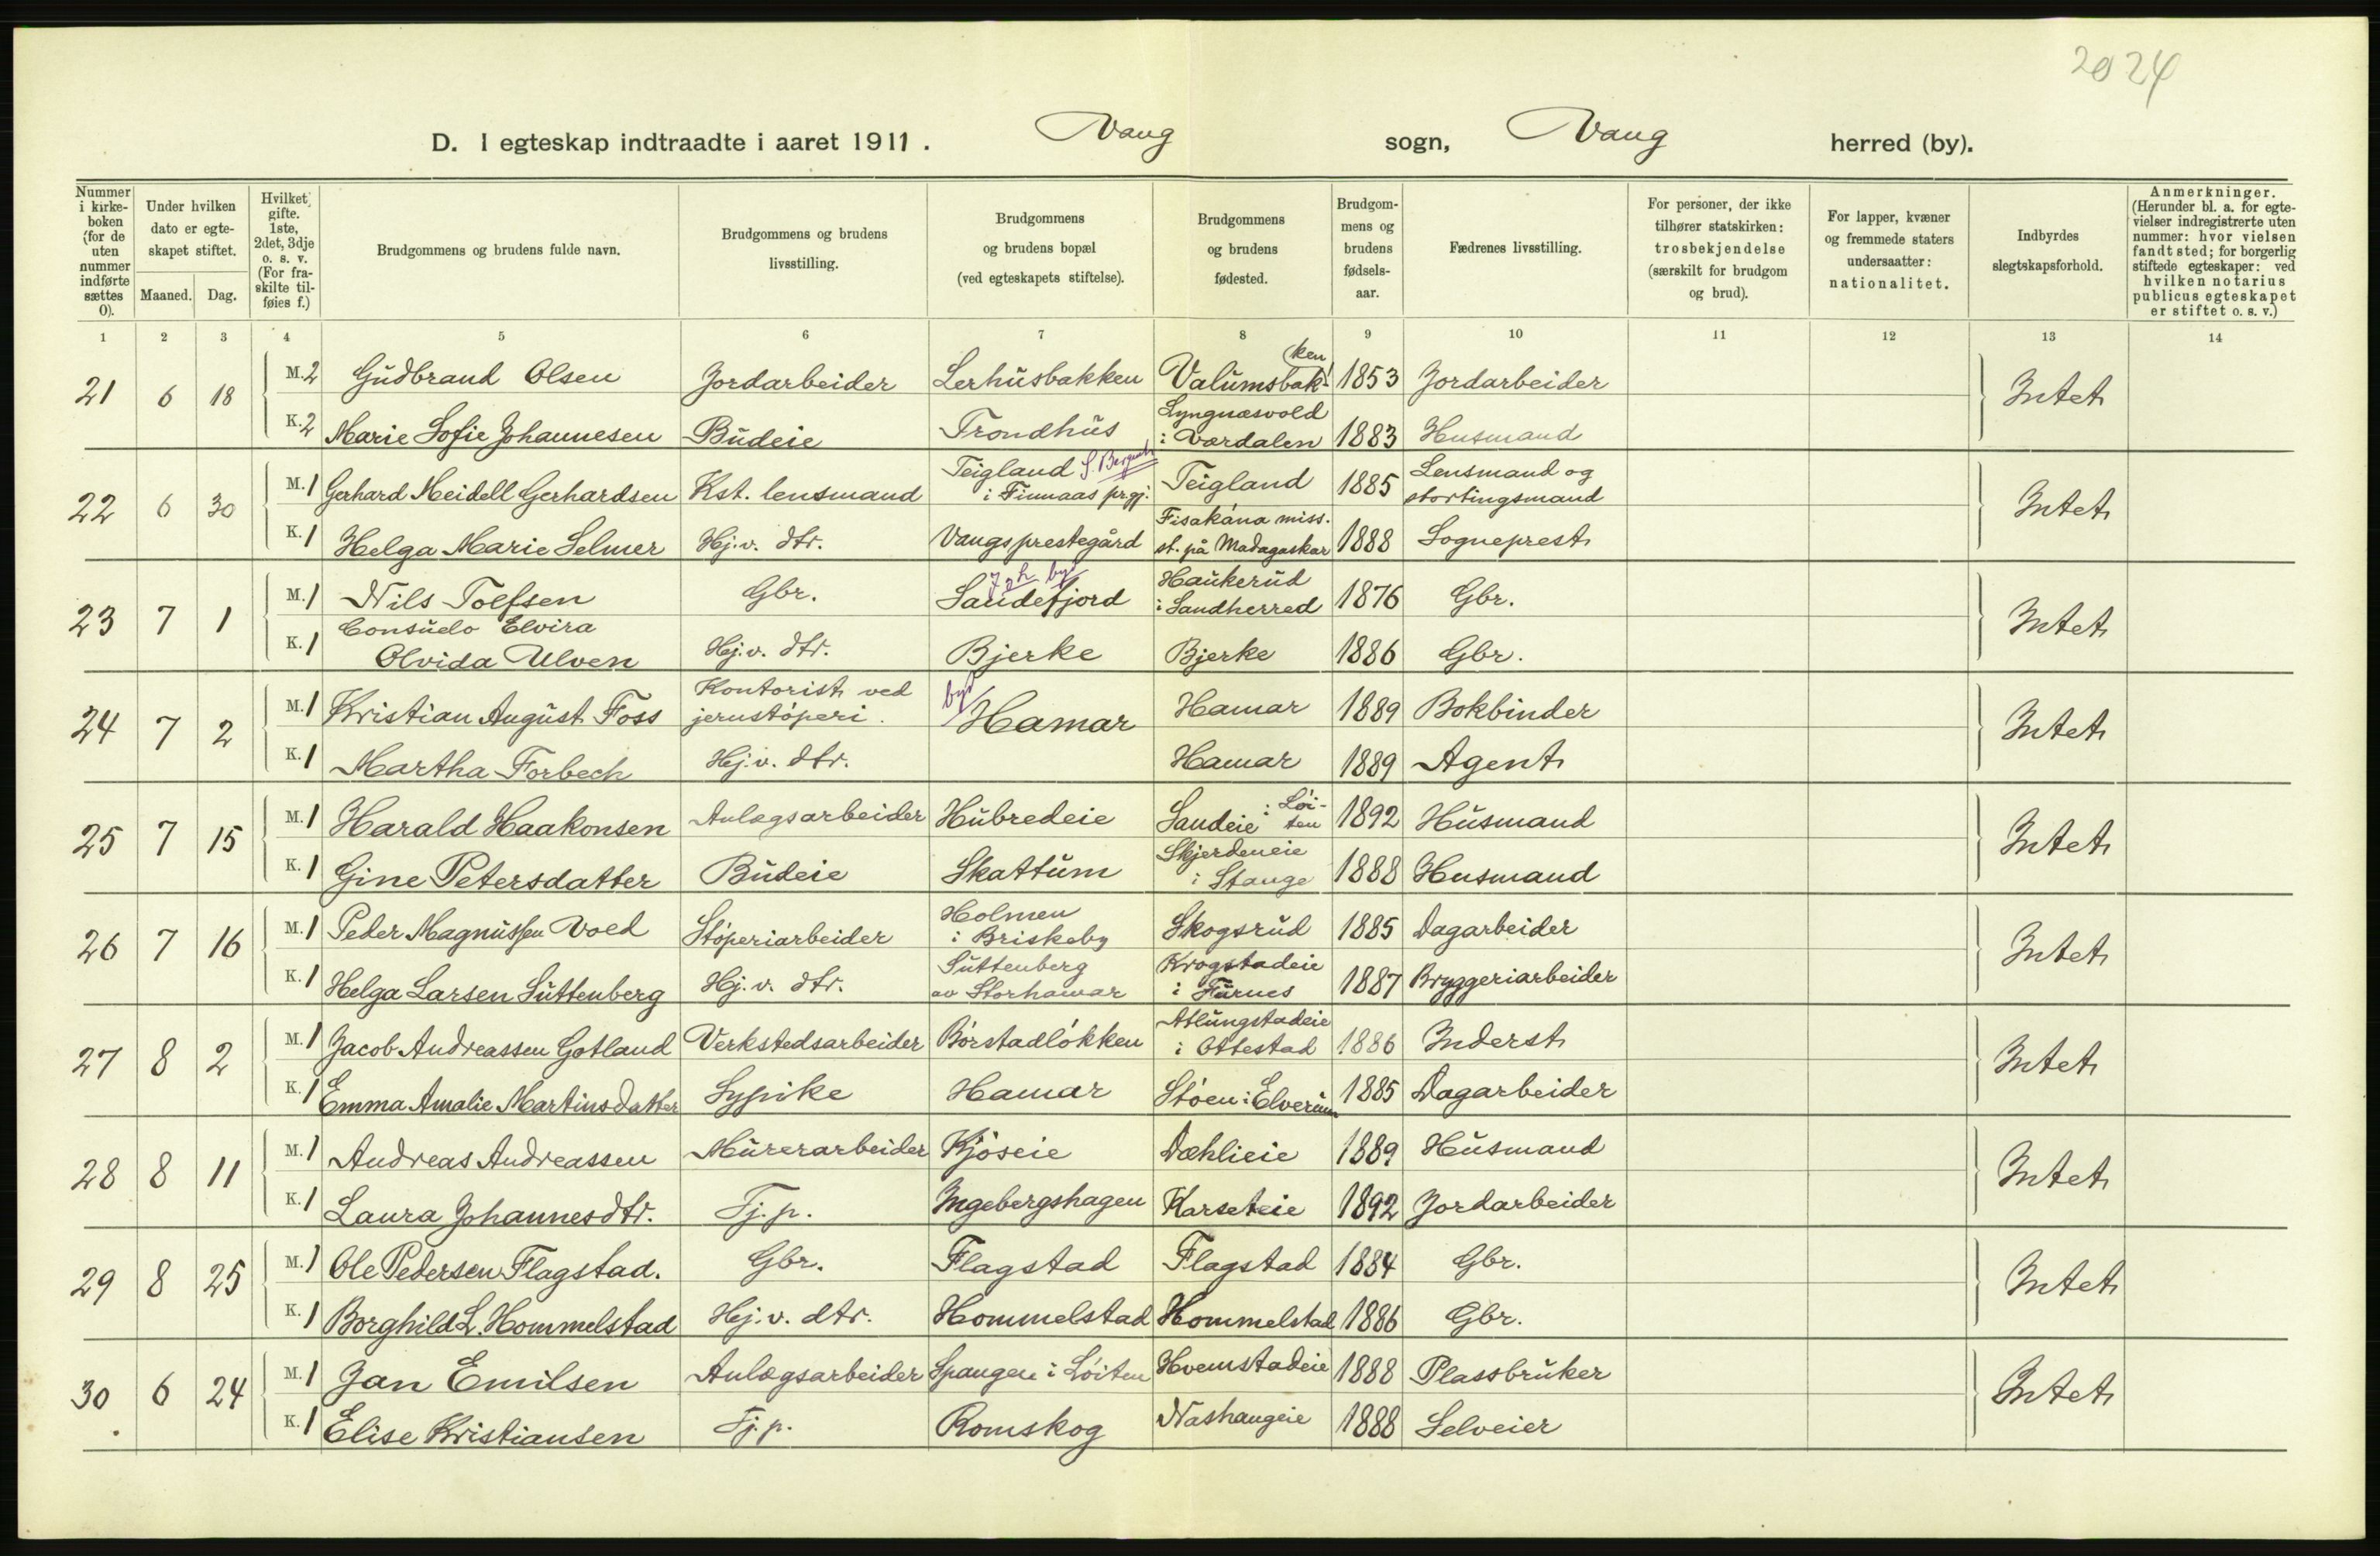 2024
D. I egteskap indtraadte i aaret 1911. Vang sogn, Vang herred (by).
Nummer i kirke-boken (for de uten nummer indførte sættes 0).
Under hvilken dato er egte-skapet stiftet.
Maaned. Dag.
Hvilket gifte. 1ste, 2det, 3dje o. s. v. (For fra-skilte til-føies f.)
Brudgommens og brudens fulde navn.
Brudgommens og brudens livsstilling.
Brudgommens og brudens bopæl (ved egteskapets stiftelse).
Brudgommens og brudens fødested.
Brudgom-mens og brudens fødsels-aar.
Fædrenes livsstilling.
For personer, der ikke tilhører statskirken: trosbekjendelse (særskilt for brudgom og brud).
For lapper, kvæner og fremmede staters undersaatter: nationalitet.
Indbyrdes slegtskapsforhold.
Anmerkninger. (Herunder bl. a. for egte-vielser indregistrerte uten nummer: hvor vielsen fandt sted; for borgerlig stiftede egteskaper: ved hvilken notarius publicus egteskapet er stiftet o. s. v.)
1 2 3 4 5 6 7 8 9 10 11 12 13 14
21 6 18 M. 2 Gudbrand Olsen Jordarbeider Lerhusbakken Valumsbak-ken 1853 Jordarbeider Intet
K. 2 Marie Sofie Johannesen Budeie Trondhus Lyngnæsvold i Værdalen 1883 Husmand
22 6 30 M. 1 Gerhard Meidell Gerhardsen Kst. lensmand Teigland i Finnaas prgj. S. Bergenh Teigland 1885 Lensmand og stortingsmand Intet
K. 1 Helga Marie Selmer Hj. v. dtr. Vangs prestegård Fisakána miss. st. på Madagaskar 1888 Sogneprest
23 7 1 M. 1 Nils Tolfsen Gbr. Sandefjord by Haukerud i Sandherred 1876 Gbr. Intet
K. 1 Consuelo Elvira Olvida Ulven Hj. v. dtr. Bjerke Bjerke 1886 Gbr.
24 7 2 M. 1 Kristian August Foss Kontorist ved jernstöperi. by Hamar Hamar 1889 Bokbinder Intet
K. 1 Martha Forbech Hj. v. dtr. Hamar 1889 Agent
25 7 15 M. 1 Harald Haakonsen Anlægsarbeider Hubredeie Sandeie i Löi-ten 1892 Husmand Intet
K. 1 Gine Petersdatter Budeie Skattum Skjerdeneie i Stange 1888 Husmand
26 7 16 M. 1 Peder Magnussen Vold Stöperiarbeider Holmen i Briskeby Skogsrud 1885 Dagarbeider Intet
K. 1 Helga Larsen Suttenberg Hj. v. dtr. Suttenberg av Storhamar Krogstadeie i Furnes 1887 Bryggeriarbeider
27 8 2 M. 1 Jacob Andreassen Gotland Verkstedsarbeider Börstadlökken Atlungstadeie i Ottestad 1886 Inderst Intet
K. 1 Emma Amalie Martinsdatter Sypike Hamar Stöen i Elverum 1885 Dagarbeider
28 8 11 M. 1 Andreas Andreassen Murerarbeider Kjöseie Dæhlieie 1889 Husmand Intet
K. 1 Laura Johannesdtr. Tj. p. Ingebergshagen Karseteie 1892 Jordarbeider
29 8 25 M. 1 Ole Pedersen Flagstad. Gbr. Flagstad Flagstad 1884 Gbr. Intet
K. 1 Borghild L. Hommelstad Hj. v. dtr. Hommelstad Hommelstad 1886 Gbr.
30 6 24 M. 1 Jan Emilsen Anlægsarbeider Spangen i Löiten Hvemstadeie 1888 Plassbruker Intet
K. 1 Elise Kristiansen Tj. p. Romskog Nashaugeie 1888 Selveier